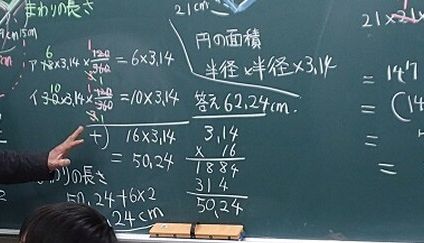 まわりの長さ
21cm
円の面積
半径×半径×3,14
ア 6 18×3,14×120/360 1 3 =6×3,14
イ 10 30×3,14×120/360 1 3 =10×3,14
答え62,24cm
+) 16×3,14
=50,24
わりの長さ
50,24+6×2
24cm
3,14
× 16
1884
314
50,24
21×21×
=147
=(14
=